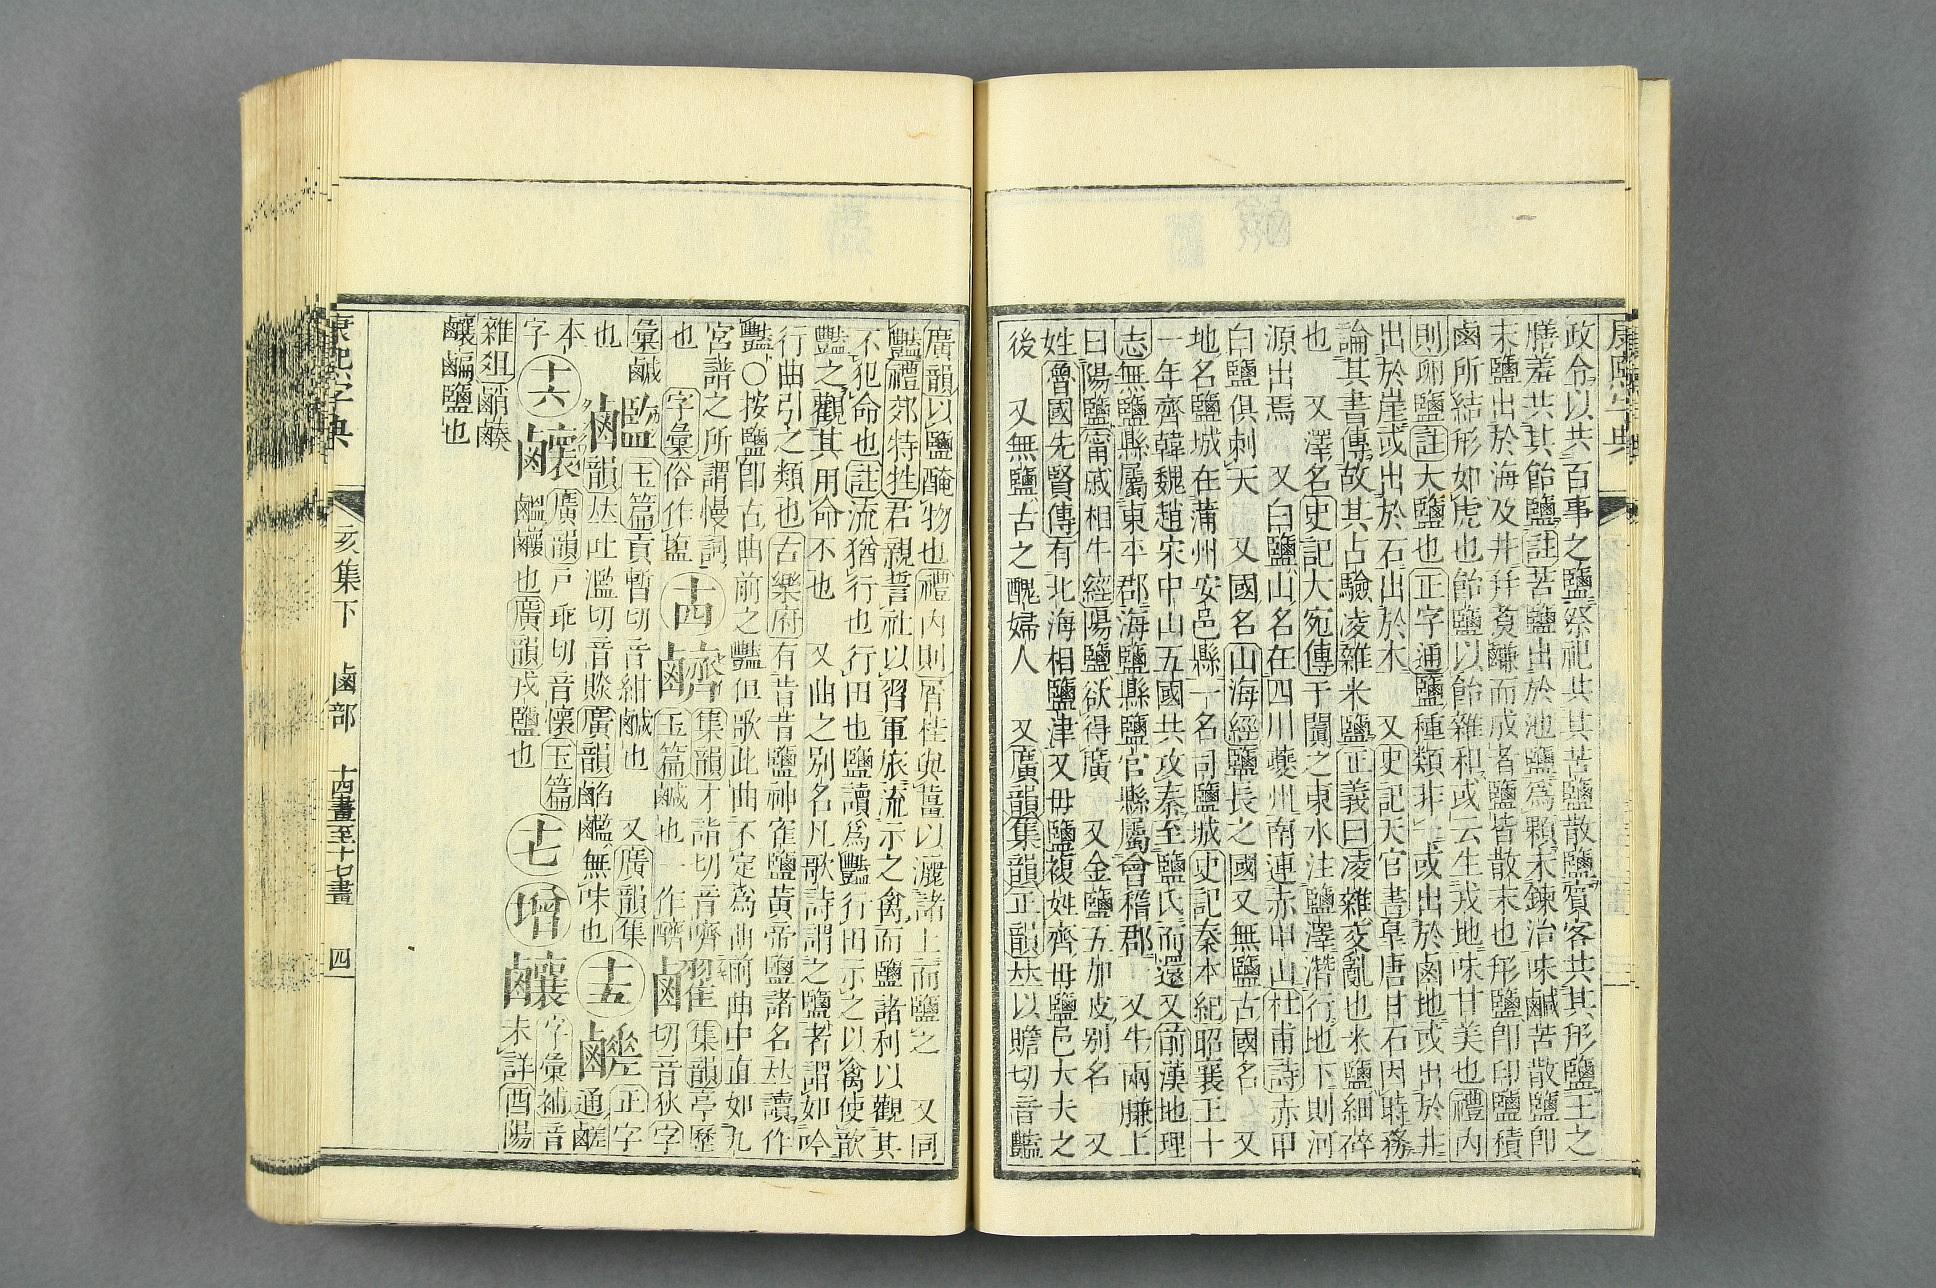 康熙字典
政令以共百事之鹽祭祀共其苦鹽散鹽賓客共其形鹽王之
膳羞共其飴鹽註苦鹽出於池鹽為顆未鍊治味鹹苦散鹽卽
末鹽出於海及井幷煑鹻而成者鹽皆散末也形鹽卽印鹽積
鹵所結形如虎也飴鹽以飴雜和或云生戎地味甘美也禮內
則卵鹽註大鹽也正字通鹽種類非一或出於鹵地或出於井
出於崖或出於石出於木 又史記天官書皐唐甘石因時務
論其書傳故其占驗凌雜米鹽正義曰凌雜交亂也米鹽細碎
也 又澤名史記大宛傳于闐之東水注鹽澤潛行地下則河
源出焉 又白鹽山名在四川夔州南連赤甲山杜甫詩赤甲
白鹽俱刺天 又國名山海經鹽長之國又無鹽古國名 又
地名鹽城在蒲州安邑縣一名司鹽城史記秦本紀昭襄王十
一年齊韓魏趙宋中山五國共攻秦至鹽氏而還又前漢地理
志無鹽縣屬東平郡海鹽縣鹽官縣屬會稽郡 又牛兩膁上
曰陽鹽甯戚相牛經陽鹽欲得廣 又金鹽五加皮別名 又
姓魯國先賢傳有北海相鹽津又毋鹽複姓齊毋鹽邑大夫之
後 又無鹽古之醜婦人 又廣韻集韻正韻𠀤以贍切音豔
廣韻以鹽醃物也禮內則屑桂與薑以灑諸上而鹽之 又同
豔禮郊特牲君親誓社以習軍旅流示之禽而鹽諸利以觀其
不犯命也註流猶行也行田也鹽讀爲豔行田示之以禽使歆
豔之觀其用命不也 又曲之別名凡歌詩謂之鹽者謂如吟
行曲引之類也古樂府有昔昔鹽神雀鹽黃帝鹽諸名𠀤讀作
豔○按鹽卽古曲前之豔但歌此曲不定為曲前曲中直如九
宮譜之所謂慢詞
也 字彙俗作塩 十四 䶒 集韻才詣切音嚌 玉篇鹹也一作䶒 集韻亭歷切音狄字
彙鹹也 玉篇貢暫切音紺鹹也 又廣韻集
韻𠀤吐濫切音賧廣韻䶟無味也 十五 正字通䴾
本字 十六 廣韻戸乖切音懷玉篇
也廣韻戎鹽也 十七 增 字彙補音
未詳酉陽
雜俎
鹽也
康熙字典 亥集下 鹵部 十四畫至十七畫 四